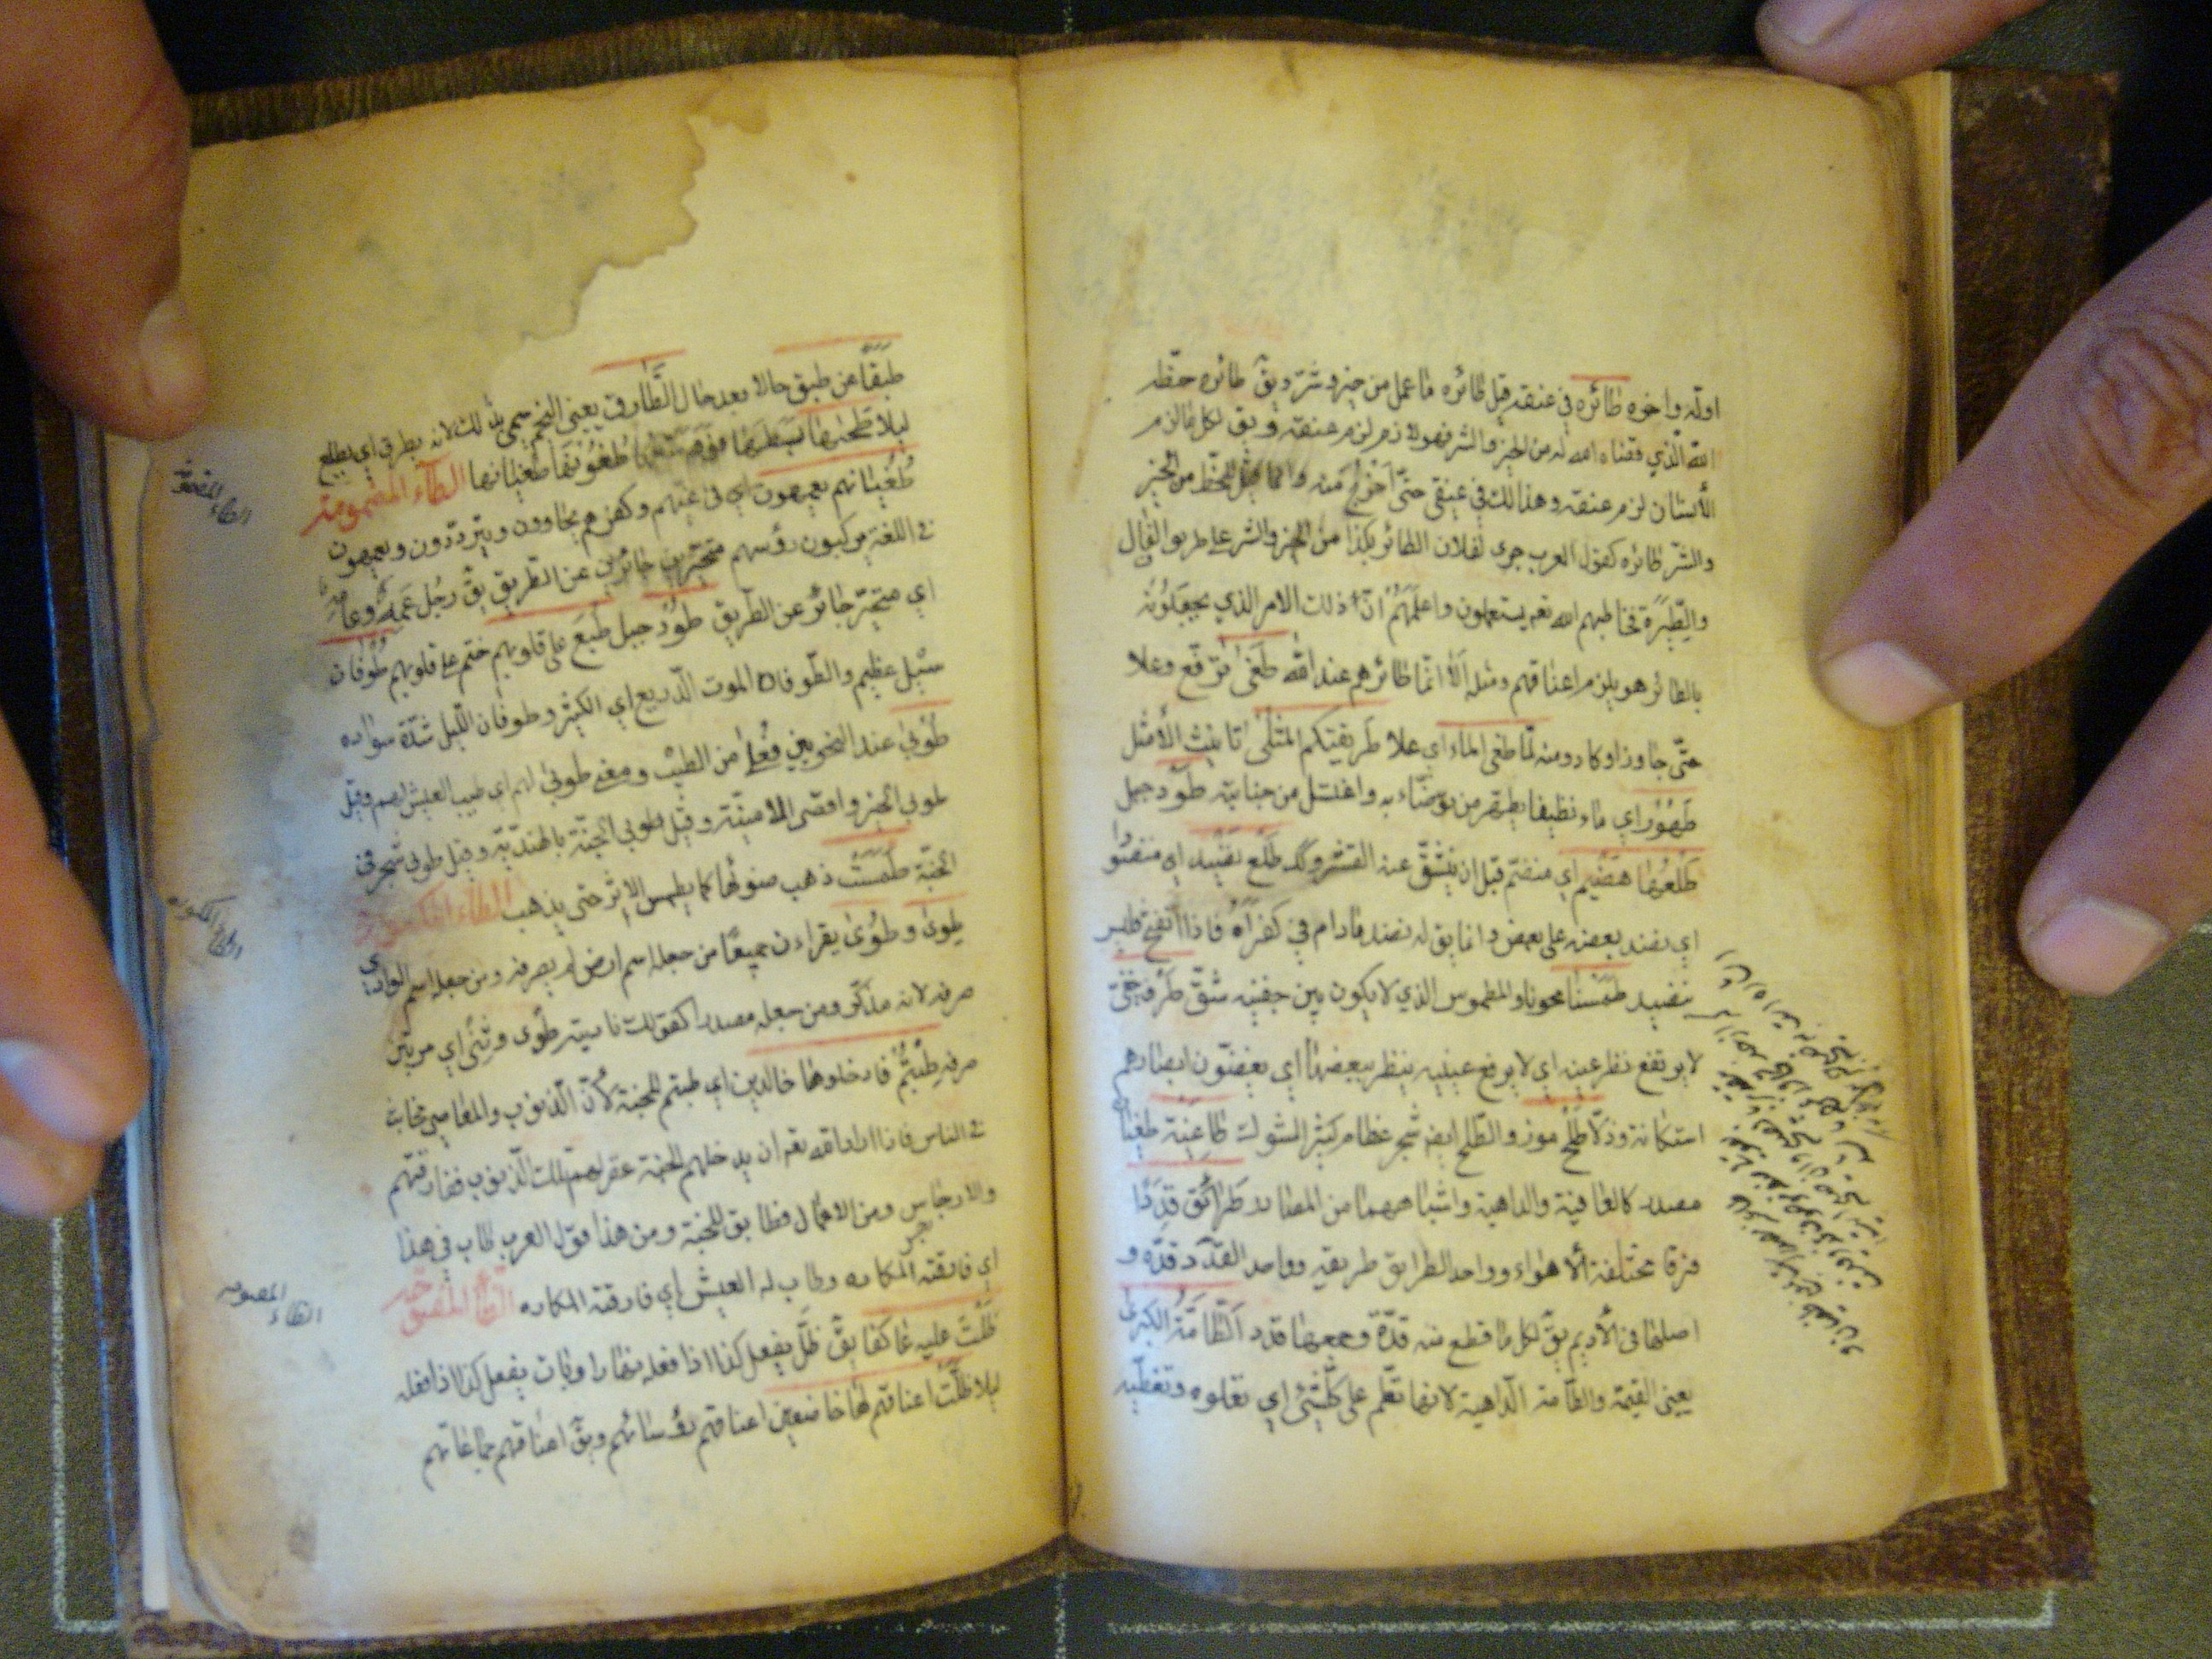 اوله واخره طائره في عنقه قيل طائره ما عمل من خير وشر ويق طائره حظه
الذي قضاه الله له من الخير والشر فهو لازم لزم عنقه ويق لكل ما لزم
الأنسان لزم عنقه وهذا لك في عنقي حتى اخرج منه وانما قيل للحظ من الخير
والشر طائره كقول العرب جرى لفلان الطائر بكذا من الخير والشر على طريق الفال
والطيرة فخاطبهم الله تعم يستعملون واعلمهم ان ذلك الامر الذي يجعلونه
بالطائر هو يلزم اعناقهم ومثله الا انما طائرهم عند الله طغى ترفع وعلا
حتى جاوز اوكاد ومنه لما طغى الماء اي علا طريقتكم المثلى تانيث الأمثل
طهورا اي ماء نظيفا يطهر من توضاء به واغتسل من جنابته طود جبل
طلعها هضيم اي منضم قبل ان ينشق عنه القشر وكذ طلع نضيد اي منضود
اي نضد بعضه على بعض وانما يق له نضيد مادام في كفراه فاذا انفتح فليس
بنضيد طمسنا محونا والمطموس الذي لا يكون بين جفنيه شق طرف خفي
لا يرتفع نظر عينه اي لا يرفع عينيه ينظر ببعضها اي يغضون ابصارهم
استكانة وذلا طلح موز والطلح ايض شجر عظام كثير الشوك طاغية طغيان
مصدر كالعافية والداهية واشباههما من المصادر طرائق قددا
فرقا مختلفة الأهواء وواحد الطرائق طريقه وواحد القدد قدة و
اصلها في الأديم يق لكل ما قطع منه قدة وجمعها قدد الطامة الكبرى
يعني القيمة والطامة الداهية لانها تطم على كل شئ اي تعلوه وتغطيه
طبقا عن طبق حالا بعد حال الطارق يعني النجم سمي بذلك لانه يطرق اي يطلع
ليلا طحيها بسطها طغونها طغيانها الطاء المضمومة
طغيانهم يعمهون اي في غيهم وكفرهم يحارون ويترددون ويعمهون
في اللغة يركبون رؤسهم متحيرين حائرين عن الطريق يق رجل عمه وعامه
اي متحير حائر عن الطريق طود جبل طبع على قلوبهم ختم على قلوبهم طوفان
سيل عظيم والطوفان الموت الذريع اي الكثير وطوفان الليل شدة سواده
طوبى عند النحويين فعلى من الطيب ومعنى طوبى لهم اي طيب العيش لهم وقيل
طوبى الخير واقصى الأمنية وقيل طوبى الجنة بالهندية وقيل طوبى شجر في
الجنة طمست ذهب ضوئها كما يطمس الاثر حتى يذهب الطاء المكسورة
طوى وطوى يقراءن جميعا من جعله اسم ارض لم يصرفه ومن جعله اسم الوادي
صرفه لانه مذكر ومن جعله مصدرا كقولك ناديته طوى وثنى اي مرتين
صرفه طبتم فادخلوها خالدين اي طبتم للجنة لأن الذنوب والمعاصي مخابث
في الناس فاذا اراد الله تعم ان يدخلهم الجنة غفر لهم تلك الذنوب ففارقتهم
والارجاس ومن الاعمال فطابق للجنة ومن هذا قول العرب طاب في هذا
اي فارقته المكاره وطاب له العيش اي فارقته المكاره الظاء المفتوحة
ظلت عليه عاكفا يق ظل يفعل كذا اذا فعله نهارا وبات يفعل كذا اذا فعله
ليلا ظلت اعناقهم لها خاضعين اعناقهم رؤسائهم ويق اعناقهم جماعاتهم
الطاء المضمومة
الطاء المكسورة
الظاء المفتوحة